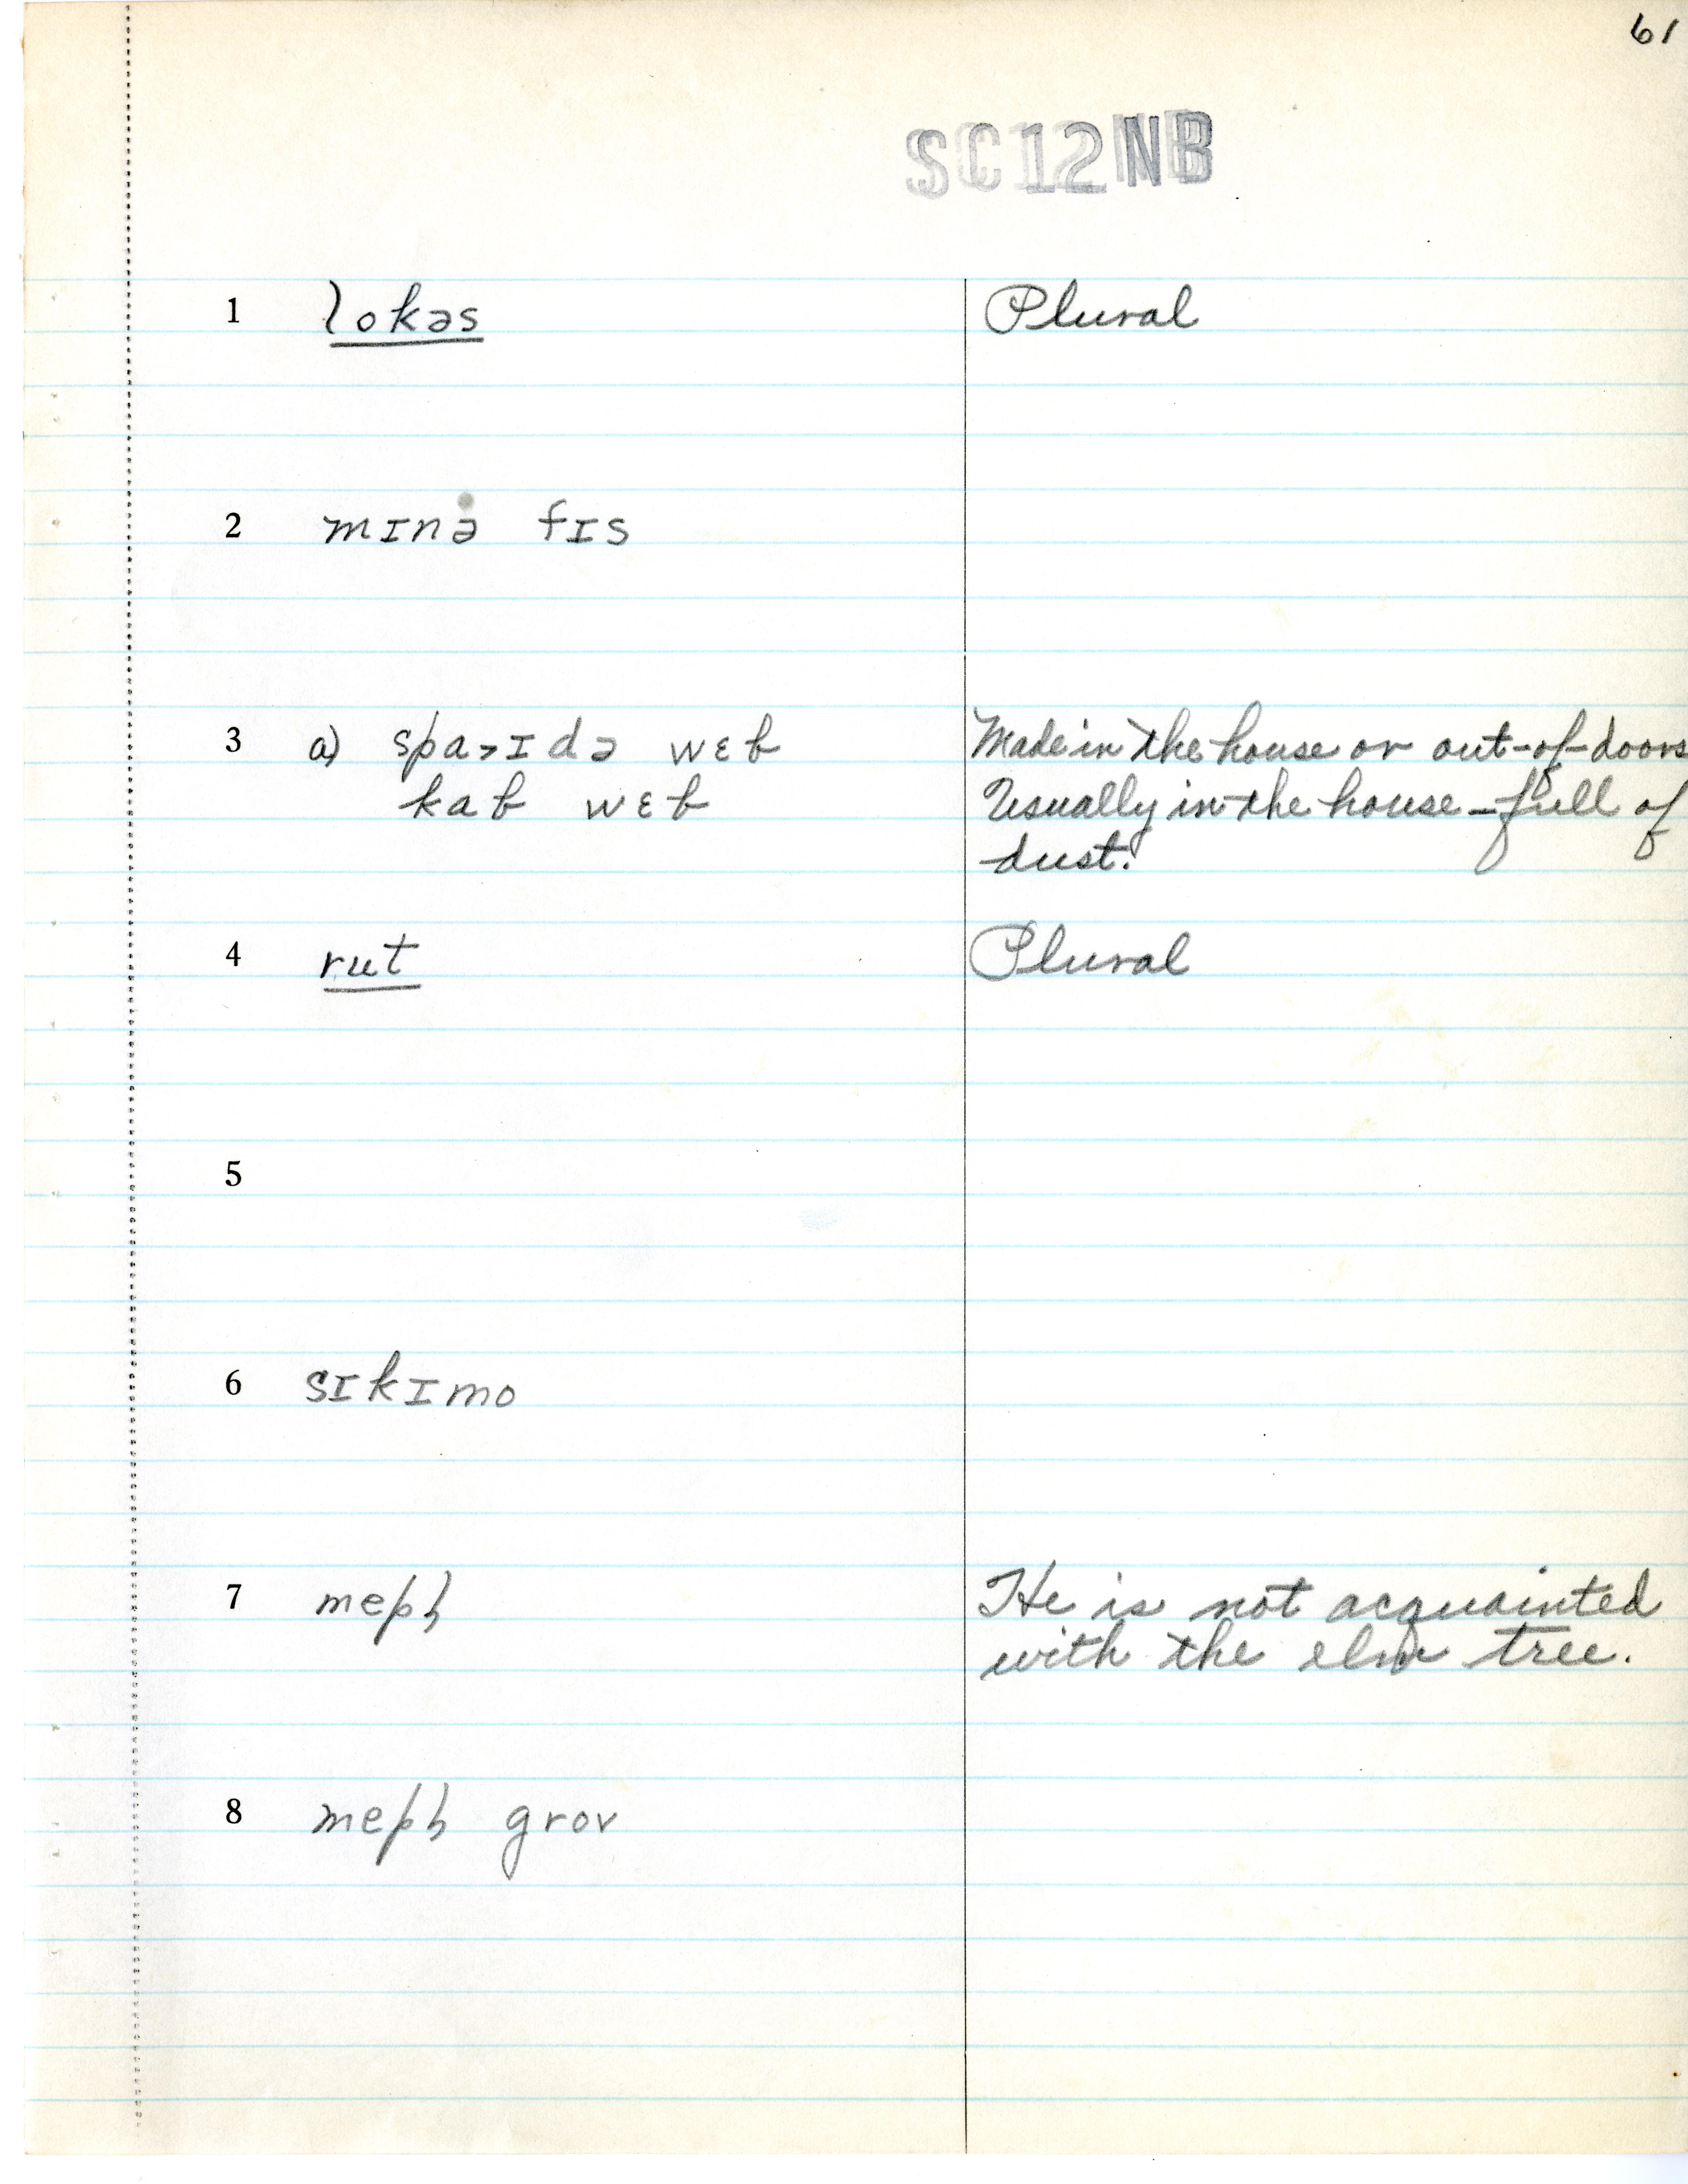 61
SC12NB
1 lokəs Plural
2 mɪnə fɪs
3 a) spa>ɪdə wɛb Made in the house or out-of-doors
kab wɛb Usually in the house - full of
dust.
4 rut Plural
5
6 sɪkɪmo
7 mepɫ He is not acquainted
with the elm tree.
8 mepɫ grov